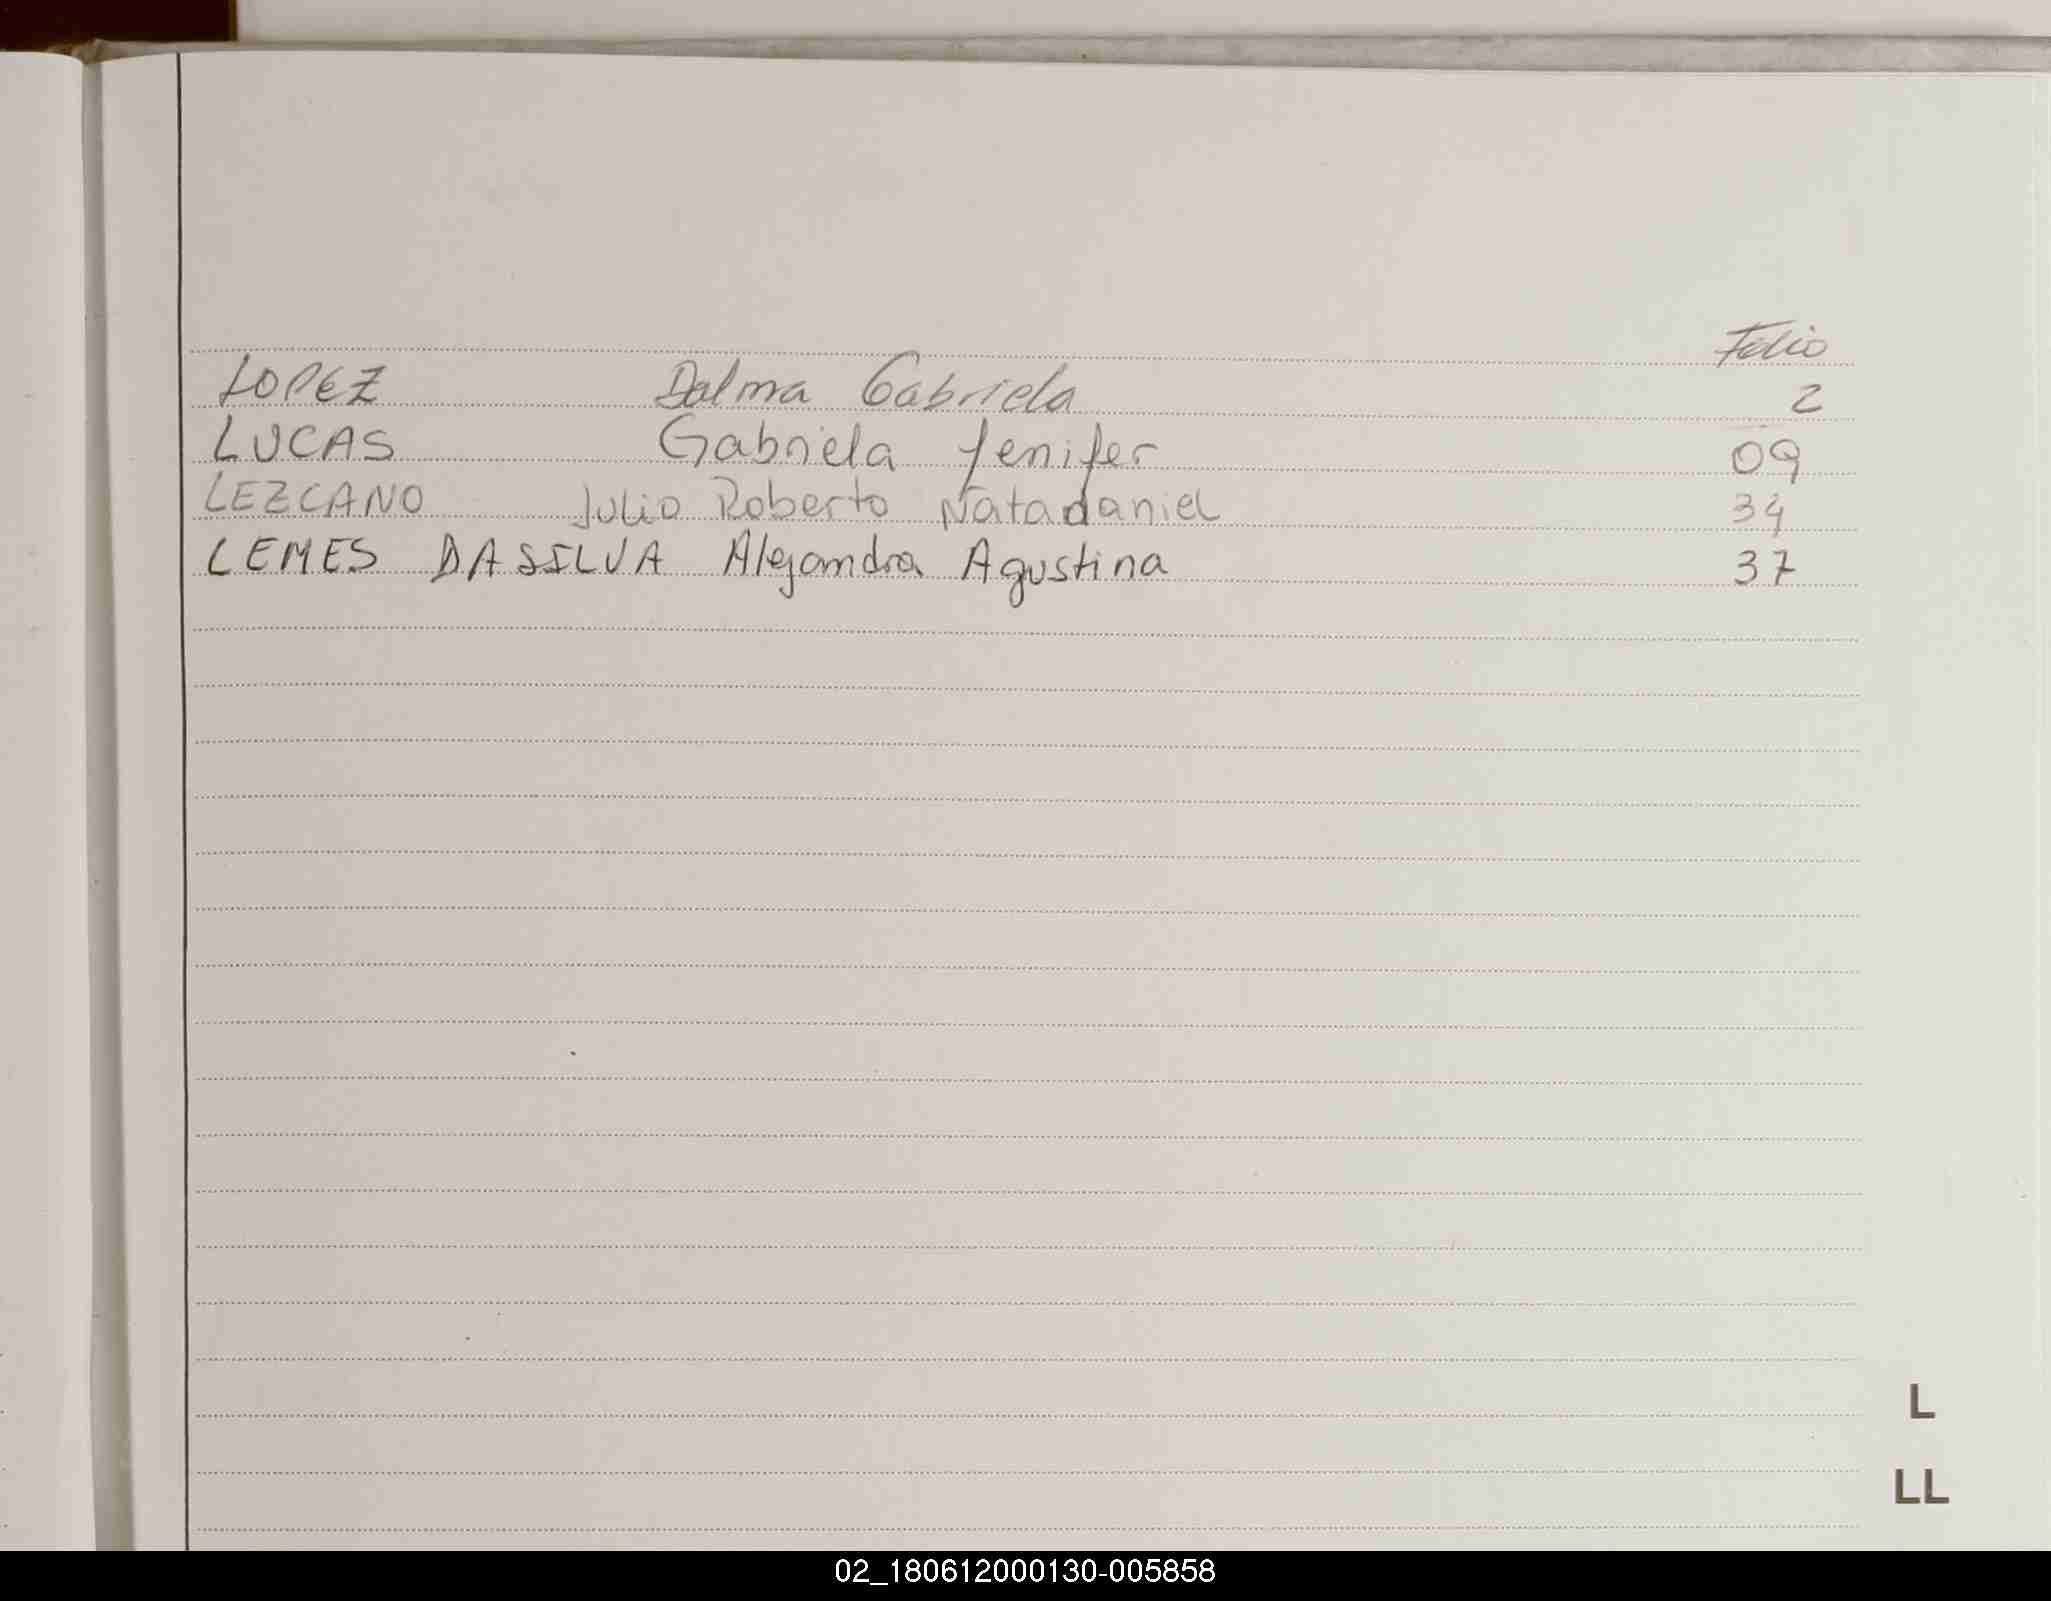 Folio
LOPEZ Dalma Gabriela 2
LUCAS Gabriela Jenifer 09
LEZCANO Julio Roberto Natadaniel 34
LEMES DA SILVA Alejandra Agustina 37
L
LL
02_180612000130-005858